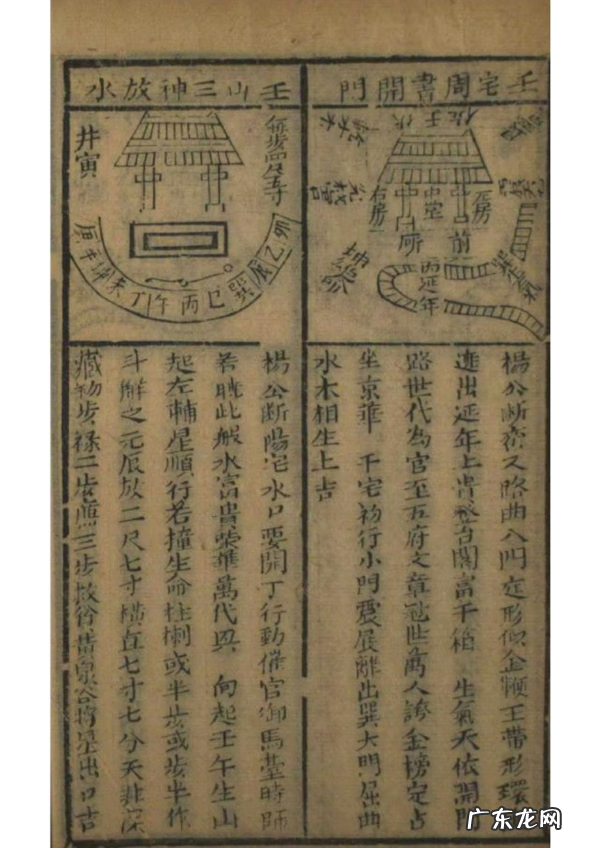 壬宅周書開門
坐壬伏
左房
中堂
右房
前
所
丙延年
楊公斷斋又路曲入門定形似金鞭玉帶形環
進出延年上貴登台閣富千箱 生氣天依開門
路世代為官至五府文章冠世萬人誇金榜定占
坐京華 千宅初行小門震展離出巽大門屈曲
水木相生上吉
壬山三神放水
井寅
卯乙辰巽巳丙午丁未坤
楊公斷陽宅水口要開丁行動催官御馬臺時師
若曉此般水富貴榮華萬代興 向起壬午生山
起左輔星順行若撞生命柱
或半步或步半作
斗解之元辰放二尺七寸橫直七寸七分天非深
藏初步祿二步馬三步
黃泉
將星出口吉
广东龙网